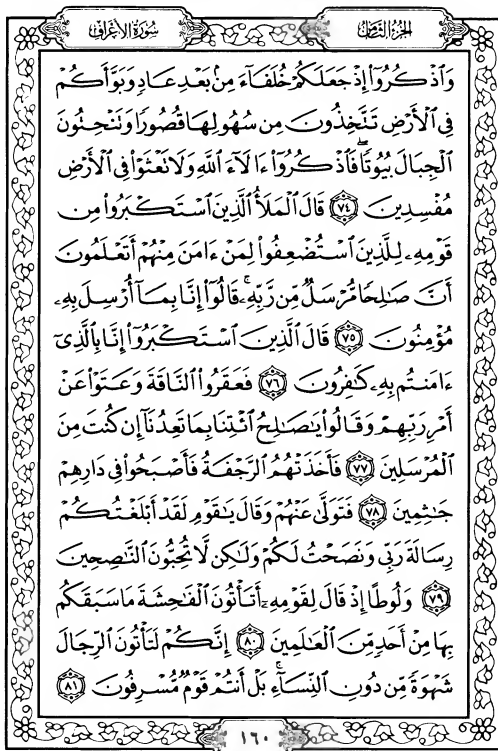 سُورَةُ الْأَعْرَافِ
الجُزْءُ الثَّامِنُ
وَٱذْكُرُوٓاْ إِذْ جَعَلَكُمْ خُلَفَآءَ مِنۢ بَعْدِ عَادٍ وَبَوَّأَكُمْ
فِى ٱلْأَرْضِ تَتَّخِذُونَ مِن سُهُولِهَا قُصُورًا وَتَنْحِتُونَ
ٱلْجِبَالَ بُيُوتًا ۖ فَٱذْكُرُوٓاْ ءَالَآءَ ٱللَّهِ وَلَا تَعْثَوْاْ فِى ٱلْأَرْضِ
مُفْسِدِينَ ﴿٧٤﴾ قَالَ ٱلْمَلَأُ ٱلَّذِينَ ٱسْتَكْبَرُواْ مِن
قَوْمِهِۦ لِلَّذِينَ ٱسْتُضْعِفُواْ لِمَنْ ءَامَنَ مِنْهُمْ أَتَعْلَمُونَ
أَنَّ صَٰلِحًا مُّرْسَلٌ مِّن رَّبِّهِۦ ۚ قَالُوٓاْ إِنَّا بِمَآ أُرْسِلَ بِهِۦ
مُؤْمِنُونَ ﴿٧٥﴾ قَالَ ٱلَّذِينَ ٱسْتَكْبَرُوٓاْ إِنَّا بِٱلَّذِىٓ
ءَامَنتُم بِهِۦ كَٰفِرُونَ ﴿٧٦﴾ فَعَقَرُواْ ٱلنَّاقَةَ وَعَتَوْاْ عَنْ
أَمْرِ رَبِّهِمْ وَقَالُواْ يَٰصَٰلِحُ ٱئْتِنَا بِمَا تَعِدُنَآ إِن كُنتَ مِنَ
ٱلْمُرْسَلِينَ ﴿٧٧﴾ فَأَخَذَتْهُمُ ٱلرَّجْفَةُ فَأَصْبَحُواْ فِى دَارِهِمْ
جَٰثِمِينَ ﴿٧٨﴾ فَتَوَلَّىٰ عَنْهُمْ وَقَالَ يَٰقَوْمِ لَقَدْ أَبْلَغْتُكُمْ
رِسَالَةَ رَبِّى وَنَصَحْتُ لَكُمْ وَلَٰكِن لَّا تُحِبُّونَ ٱلنَّٰصِحِينَ
﴿٧٩﴾ وَلُوطًا إِذْ قَالَ لِقَوْمِهِۦٓ أَتَأْتُونَ ٱلْفَٰحِشَةَ مَا سَبَقَكُم
بِهَا مِنْ أَحَدٍ مِّنَ ٱلْعَٰلَمِينَ ﴿٨٠﴾ إِنَّكُمْ لَتَأْتُونَ ٱلرِّجَالَ
شَهْوَةً مِّن دُونِ ٱلنِّسَآءِ ۚ بَلْ أَنتُمْ قَوْمٌ مُّسْرِفُونَ ﴿٨١﴾
١٦٠